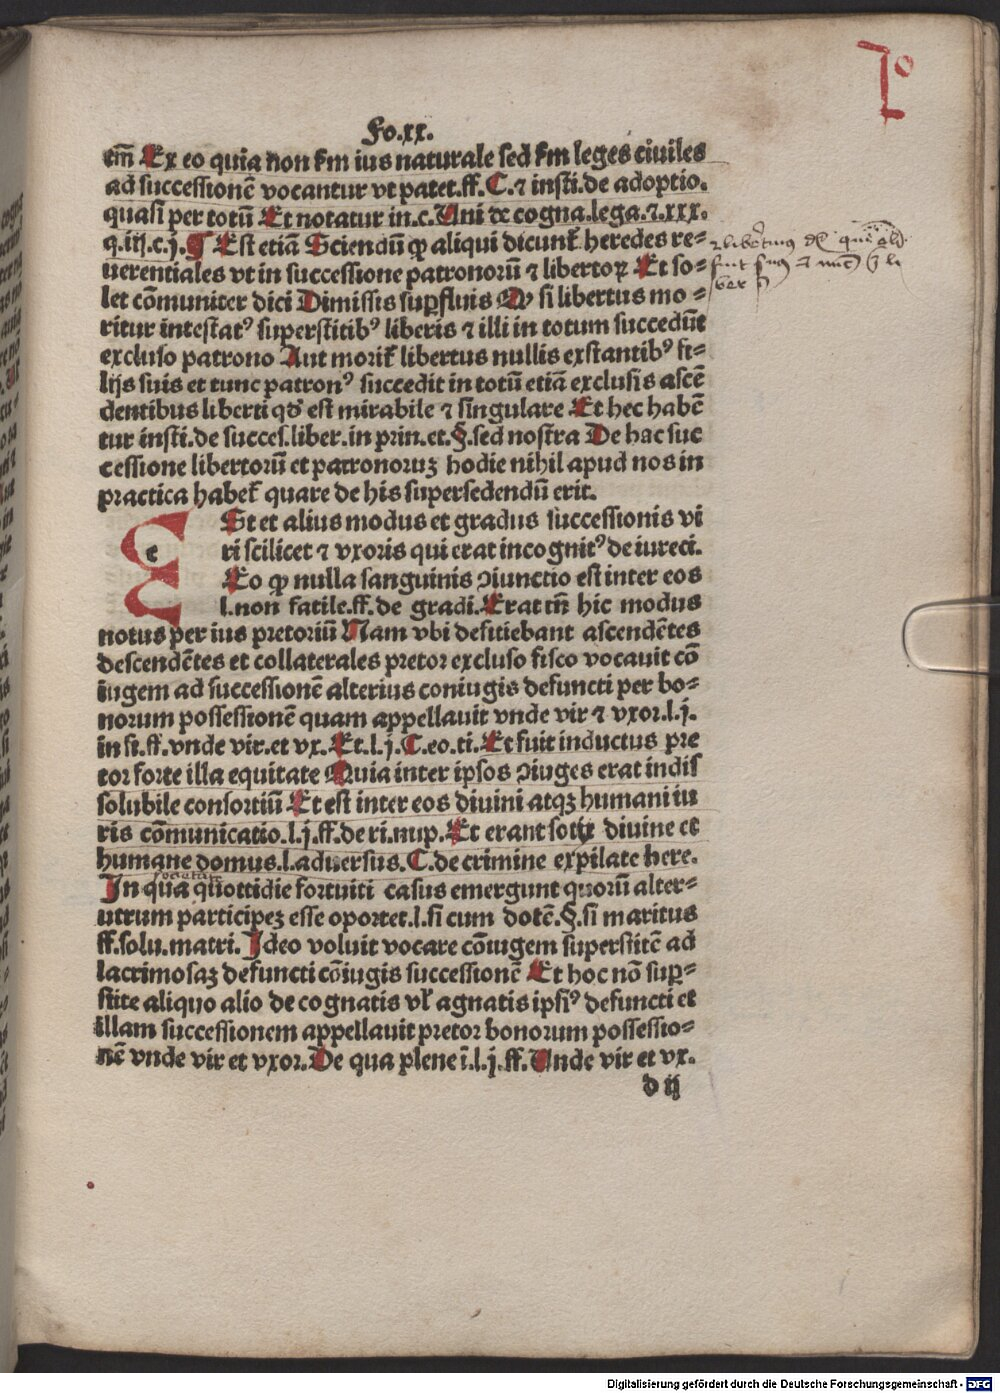 Fo.xx.
tm̄ Ex eo quia non fm ius naturale sed fm leges ciuiles
ad successionē vocantur vt patet.ff.C.⁊ insti.de adoptio.
quasi per totū Et notatur in.c.Uni de cogna.lega.⁊.xxx.
q.iij.c.j. ¶ Est etiā Sciendū ꝙ aliqui dicunt̄ heredes re-
uerentiales vt in successione patronorū ⁊ libertoꝝ Et so-
let cōmuniter dici Dimissis suꝑfluis Q' si libertus mo-
ritur intestatꝰ superstitibꝰ liberis ⁊ illi in totum succedūt
excluso patrono Aut morit̄ libertus nullis exstantibꝰ fi-
lijs suis et tunc patronꝰ succedit in totū etiā exclusis ascē
dentibus liberti qd̄ est mirabile ⁊ singulare Et hec habē
tur insti.de succes.liber.in prin.et.§.sed nostra De hac suc
cessione libertorū et patronoruꝫ hodie nihil apud nos in
practica habet̄ quare de his supersedendū erit.
e
St et alius modus et gradus successionis vi
ri scilicet ⁊ vxoris qui erat incognitꝰ de iureci.
Eo ꝙ nulla sanguinis ↄiunctio est inter eos
l.non facile.ff.de gradi.Erat tn̄ hic modus
notus per ius pretoriū Nam vbi deficiebant ascendētes
descendētes et collaterales pretor excluso fisco vocauit cō
iugem ad successionē alterius coniugis defuncti per bo-
norum possessionē quam appellauit vnde vir ⁊ vxor.l.j.
in fi.ff.vnde vir.et vx. Et.l.j.C.eo.ti.Et fuit inductus pre
tor forte illa equitate Quia inter ipsos ↄiuges erat indis
solubile consortiū Et est inter eos diuini atqꝫ humani iu
ris cōmunicatio.l.j.ff.de ri.nup.Et erant socij diuine et
humane domus.l.aduersus.C.de crimine expilate here.
societate
In qua quottidie fortuiti casus emergunt quorū alter-
utrum participeꝫ esse oportet.l.si cum dotē.§.si maritus
ff.solu.matri. Ideo voluit vocare cōiugem superstitē ad
lacrimosaꝫ defuncti cōiugis successionē Et hoc nō suꝑ-
stite aliquo alio de cognatis vl̄ agnatis ipsiꝰ defuncti et
illam successionem appellauit pretor bonorum possessio-
nē vnde vir et vxor.De qua plene ī.l.j.ff.Unde vir et vx.
d ij
Digitalisierung gefördert durch die Deutsche Forschungsgemeinschaft - DFG